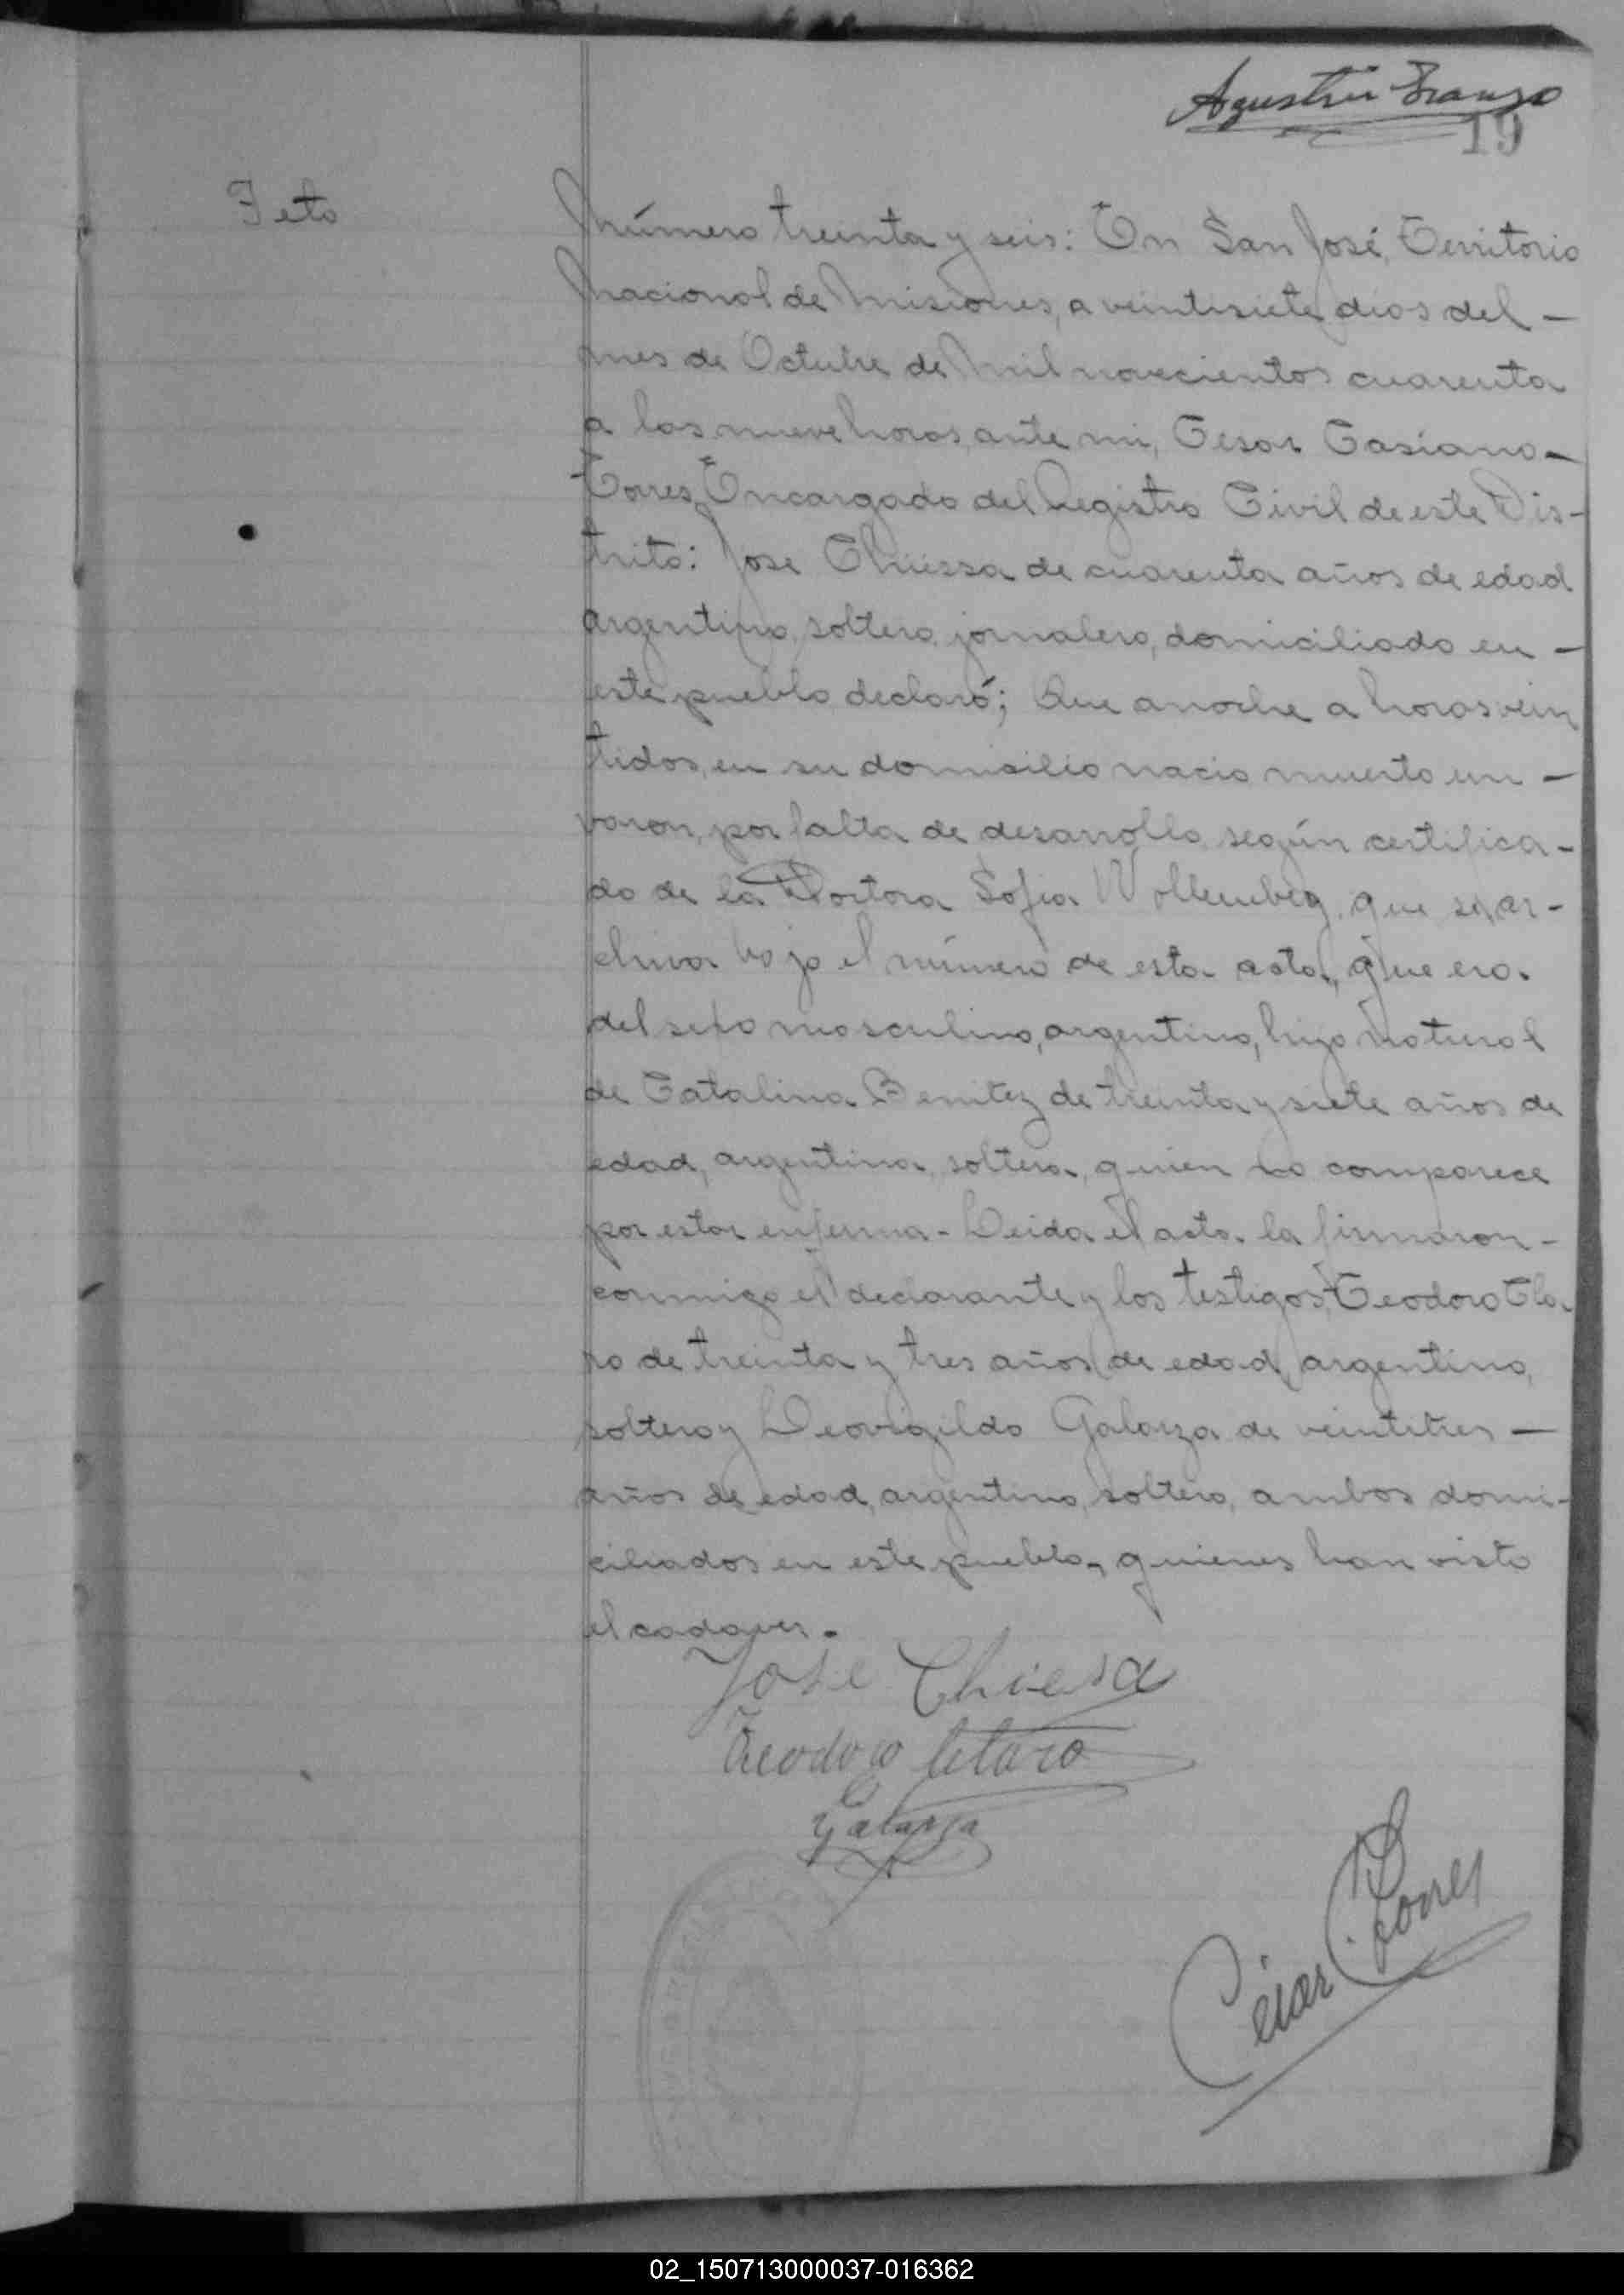 Agustín Franzo
19
Feto
Número treinta y seis: En San José, Territorio
Nacional de Misiones, a veintisiete dias del –
mes de Octubre de mil novecientos cuarenta
a las nueve horas, ante mi, Cesar Casiano –
Torres, Encargado del Registro Civil de este Dis-
trito: Jose Chiessa de cuarenta años de edad
argentino, soltero, jornalero, domiciliado en –
este pueblo declaró; Que anoche a horas vein
tidos, en su domicilio nacio muerto un –
varon, por falta de desarrollo, según certifica-
do de la Doctora Sofia Wollemberg, que se ar-
chiva bajo el número de esta acta, que era
del sexo masculino, argentino, hijo natural
de Catalina Benitez de treinta y siete años de
edad, argentina, soltera, quien no comparece
por estar enferma - Leida el acta la firmaron –
conmigo el declarante y los testigos, Teodoro Cla-
ro de treinta y tres años de edad, argentino,
soltero y Leovigildo Galarza de veintitres –
años de edad, argentino, soltero, ambos domi-
ciliados en este pueblo, quienes han visto
el cadaver.
Jose Chiesa
Teodoro Claro
Galarza
César C. Torres
02_150713000037-016362